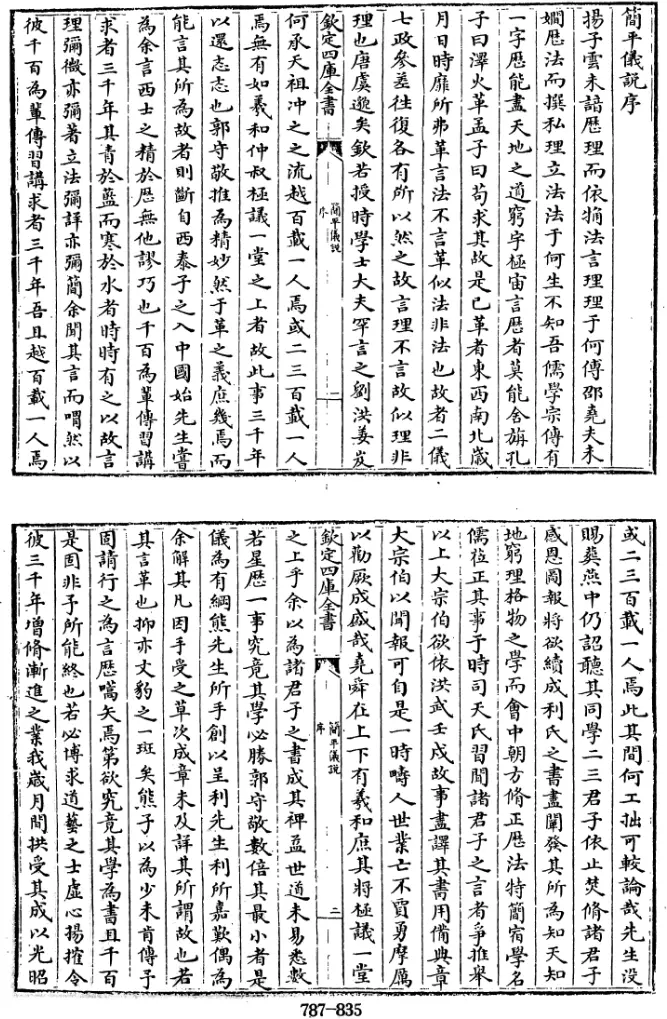 簡平儀説序
揚子雲未諳厯理而依摛法言理理于何傳邵堯夫未
嫺厯法而撰私理立法法于何生不知吾儒學宗傳有
一字厯能盡天地之道窮宇極宙言厯者莫能舍旃孔
子曰澤火革孟子曰茍求其故是已革者東西南北嵗
月日時靡所弗革言法不言革似法非法也故者二儀
七政參差往復各有所以然之故言理不言故似理非
理也唐虞邈矣欽若授時學士大夫罕言之劉洪姜岌
欽定四庫全書
簡平儀説
序
一
何承天祖冲之之流越百載一人焉或二三百載一人
焉無有如羲和仲叔極議一堂之上者故此事三千年
以還忞忞也郭守敬推為精妙然于革之義庶幾焉而
能言其所為故者則斷自西泰子之入中國始先生嘗
為余言西士之精於厯無他謬巧也千百為輩傳習講
求者三千年其青於藍而寒於水者時時有之以故言
理彌微亦彌著立法彌詳亦彌簡余聞其言而喟然以
彼千百為輩傳習講求者三千年吾且越百載一人焉
或二三百載一人焉此其間何工拙可較論哉先生没
賜葬燕中仍詔聽其同學二三君子依止焚脩諸君子
感恩圖報將欲續成利氏之書盡闡發其所為知天知
地窮理格物之學而會中朝方脩正厯法特簡宿學名
儒蒞正其事于時司天氏習聞諸君子之言者爭推舉
以上大宗伯欲依洪武壬戌故事盡譯其書用備典章
大宗伯以聞報可自是一時疇人世業亡不賈勇摩厲
以勸厥成盛哉堯舜在上下有羲和庶其將極議一堂
欽定四庫全書
簡平儀説
序
二
之上乎余以為諸君子之書成其裨益世道未易悉數
若星厯一事究竟其學必勝郭守敬數倍其最小者是
儀為有綱熊先生所手創以呈利先生利所嘉歎偶為
余解其凡因手受之草次成章未及詳其所謂故也若
其言革也抑亦文豹之一斑矣熊子以為少未肯傳予
固請行之為言厯嚆矢焉第欲究竟其學為書且千百
是固非予所能終也若必博求道藝之士虚心揚搉令
彼三千年增脩漸進之業我嵗月間拱受其成以光昭
787-835